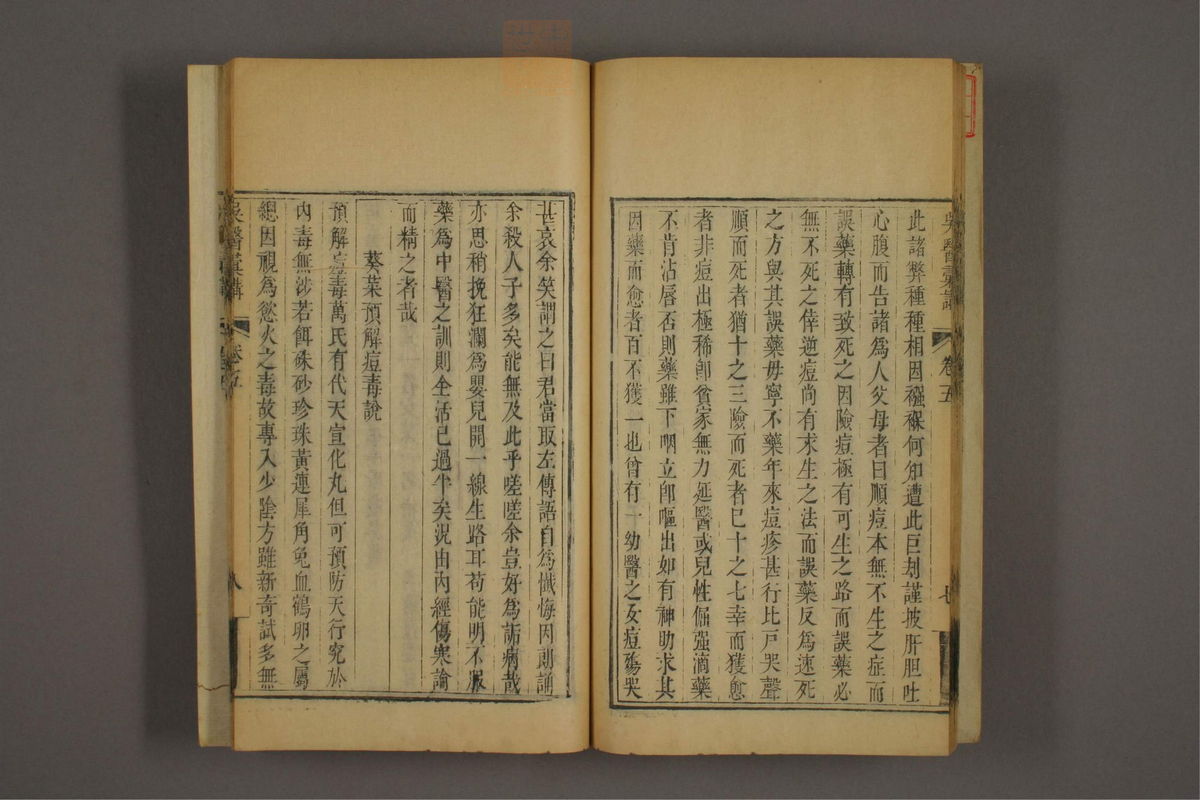 吳醫彙講
卷五
七
此諸弊種種相因襁褓何知遭此巨刼謹披肝胆吐
心腹而告諸為人父母者曰順痘本無不生之症而
誤藥轉有致死之因險痘極有可生之路而誤藥必
無不死之倖逆痘尚有求生之法而誤藥反為速死
之方與其誤藥毋寧不藥年來痘疹甚行比戸哭聲
順而死者猶十之三險而死者已十之七幸而獲愈
者非痘出極稀卽貧家無力延醫或兒性倔强滴藥
不肯沾唇否則藥雖下咽立卽嘔出如有神助求其
因藥而愈者百不獲一也曾有一幼醫之女痘殤哭
甚哀余笑謂之曰君當取左傳語自為懺悔因朗誦
余殺人子多矣能無及此乎嗟嗟余豈好為詬病哉
亦思稍挽狂瀾為嬰兒開一線生路耳苟能明不服
藥為中醫之訓則全活已過半矣況由內經傷寒論
而精之者哉
葵葉預解痘毒說
預解痘毒萬氏有代天宣化丸但可預防天行究於
內毒無涉若餌硃砂珍珠黃連犀角兔血鶴卵之屬
總因視為慾火之毒故專入少陰方雖新奇試多無
吳醫彙講
卷五
八